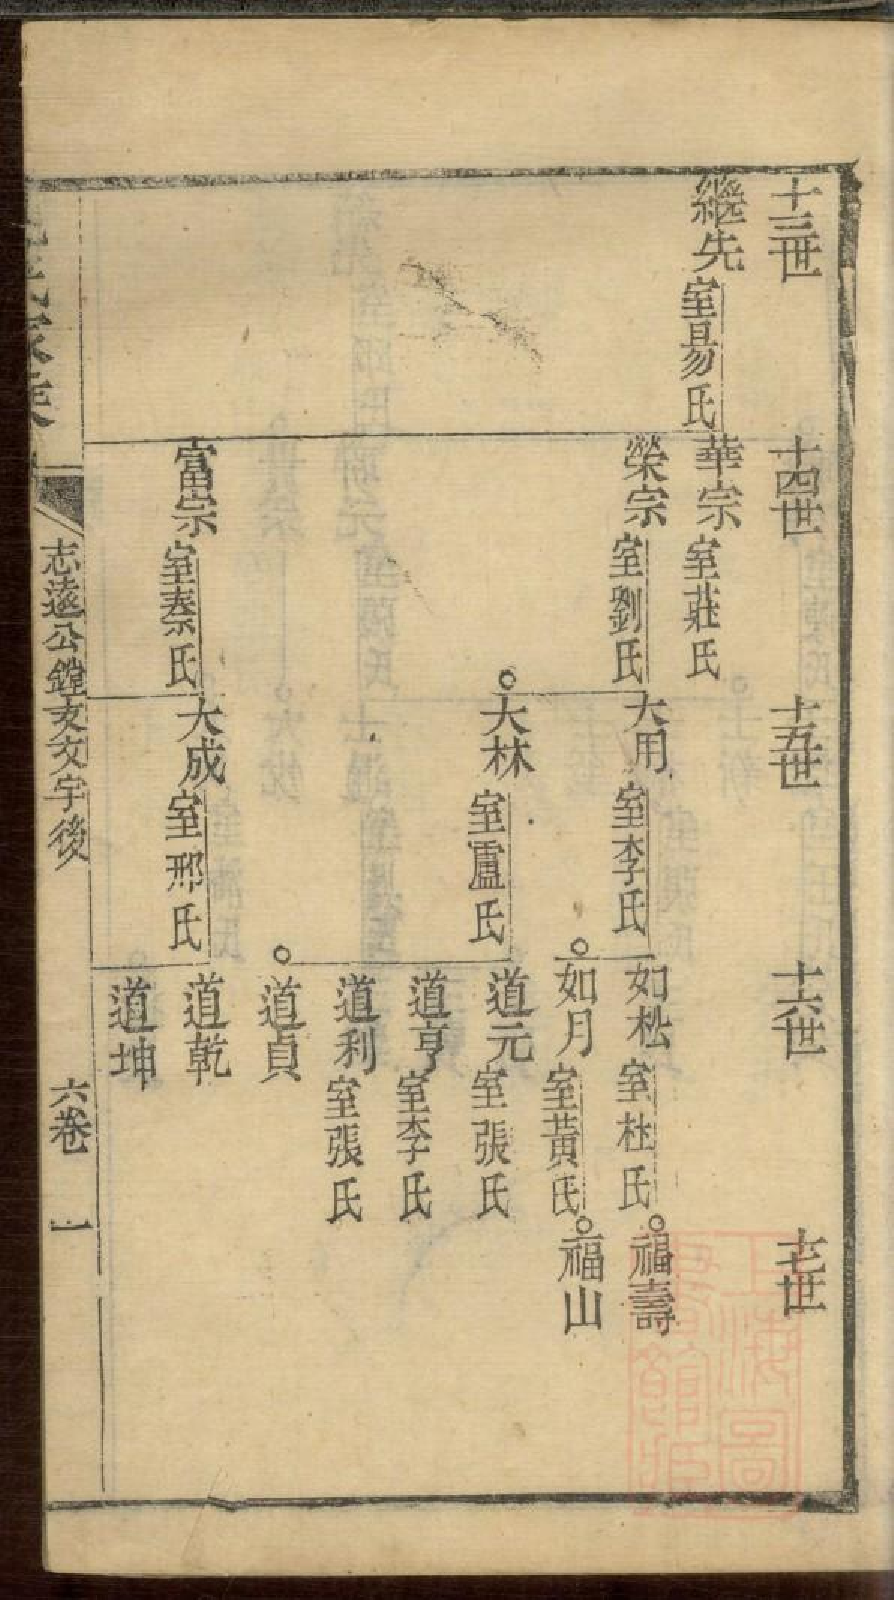 十三世
繼先室易氏
十四世
華宗室莊氏
榮宗室劉氏
富宗室秦氏
十五世
大用室李氏
大林室盧氏
大成室邢氏
十六世
如松室杜氏
如月室黃氏
道元室張氏
道亨室李氏
道利室張氏
道貞
道乾
道坤
十七世
福壽
福山
氏家
志遠公鏜支文字後
六卷
一
上海圖
書館